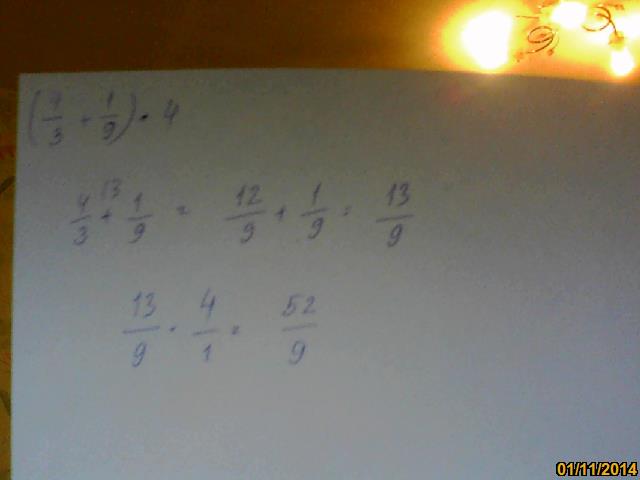 (4/3 + 1/9) · 4
4/3 + 1/9 = 12/9 + 1/9 = 13/9
13/9 · 4/1 = 52/9
01/11/2014